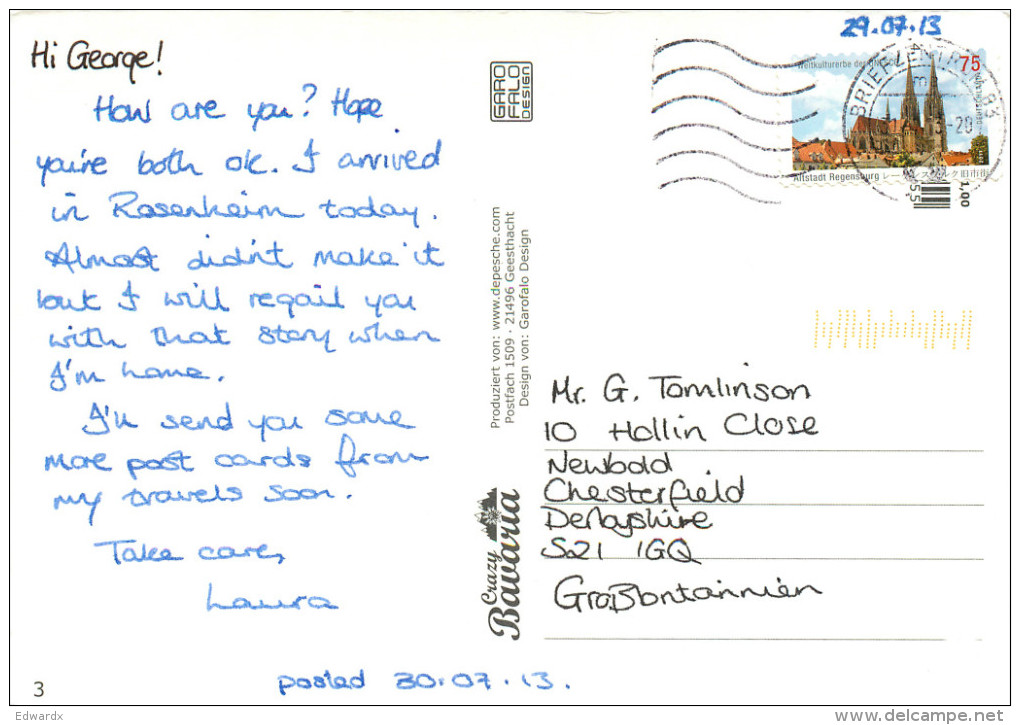 29.07.13
Hi George!
How are you? Hope
you're both ok. I arrived
in Rosenheim today.
Almost didn't make it
but I will regail you
with that story when
I'm home.
I'll send you some
more post cards from
my travels soon.
Take care,
Laura
posted 30.07.13.
3
GARO
FALO
DESIGN
Produziert von: www.depesche.com
Postfach 1509 · 21496 Geesthacht
Design von: Garofalo Design
Crazy
Bavaria
Weltkulturerbe der UNESCO
75
Altstadt Regensburg レーゲンスブルク旧市街
1,00
55
BRIEFZENTRUM 83
Mr. G. Tomlinson
10 Hollin Close
Newbold
Chesterfield
Derbyshire
S21 1GQ
Großbritannien
Edwardx
www.delcampe.net